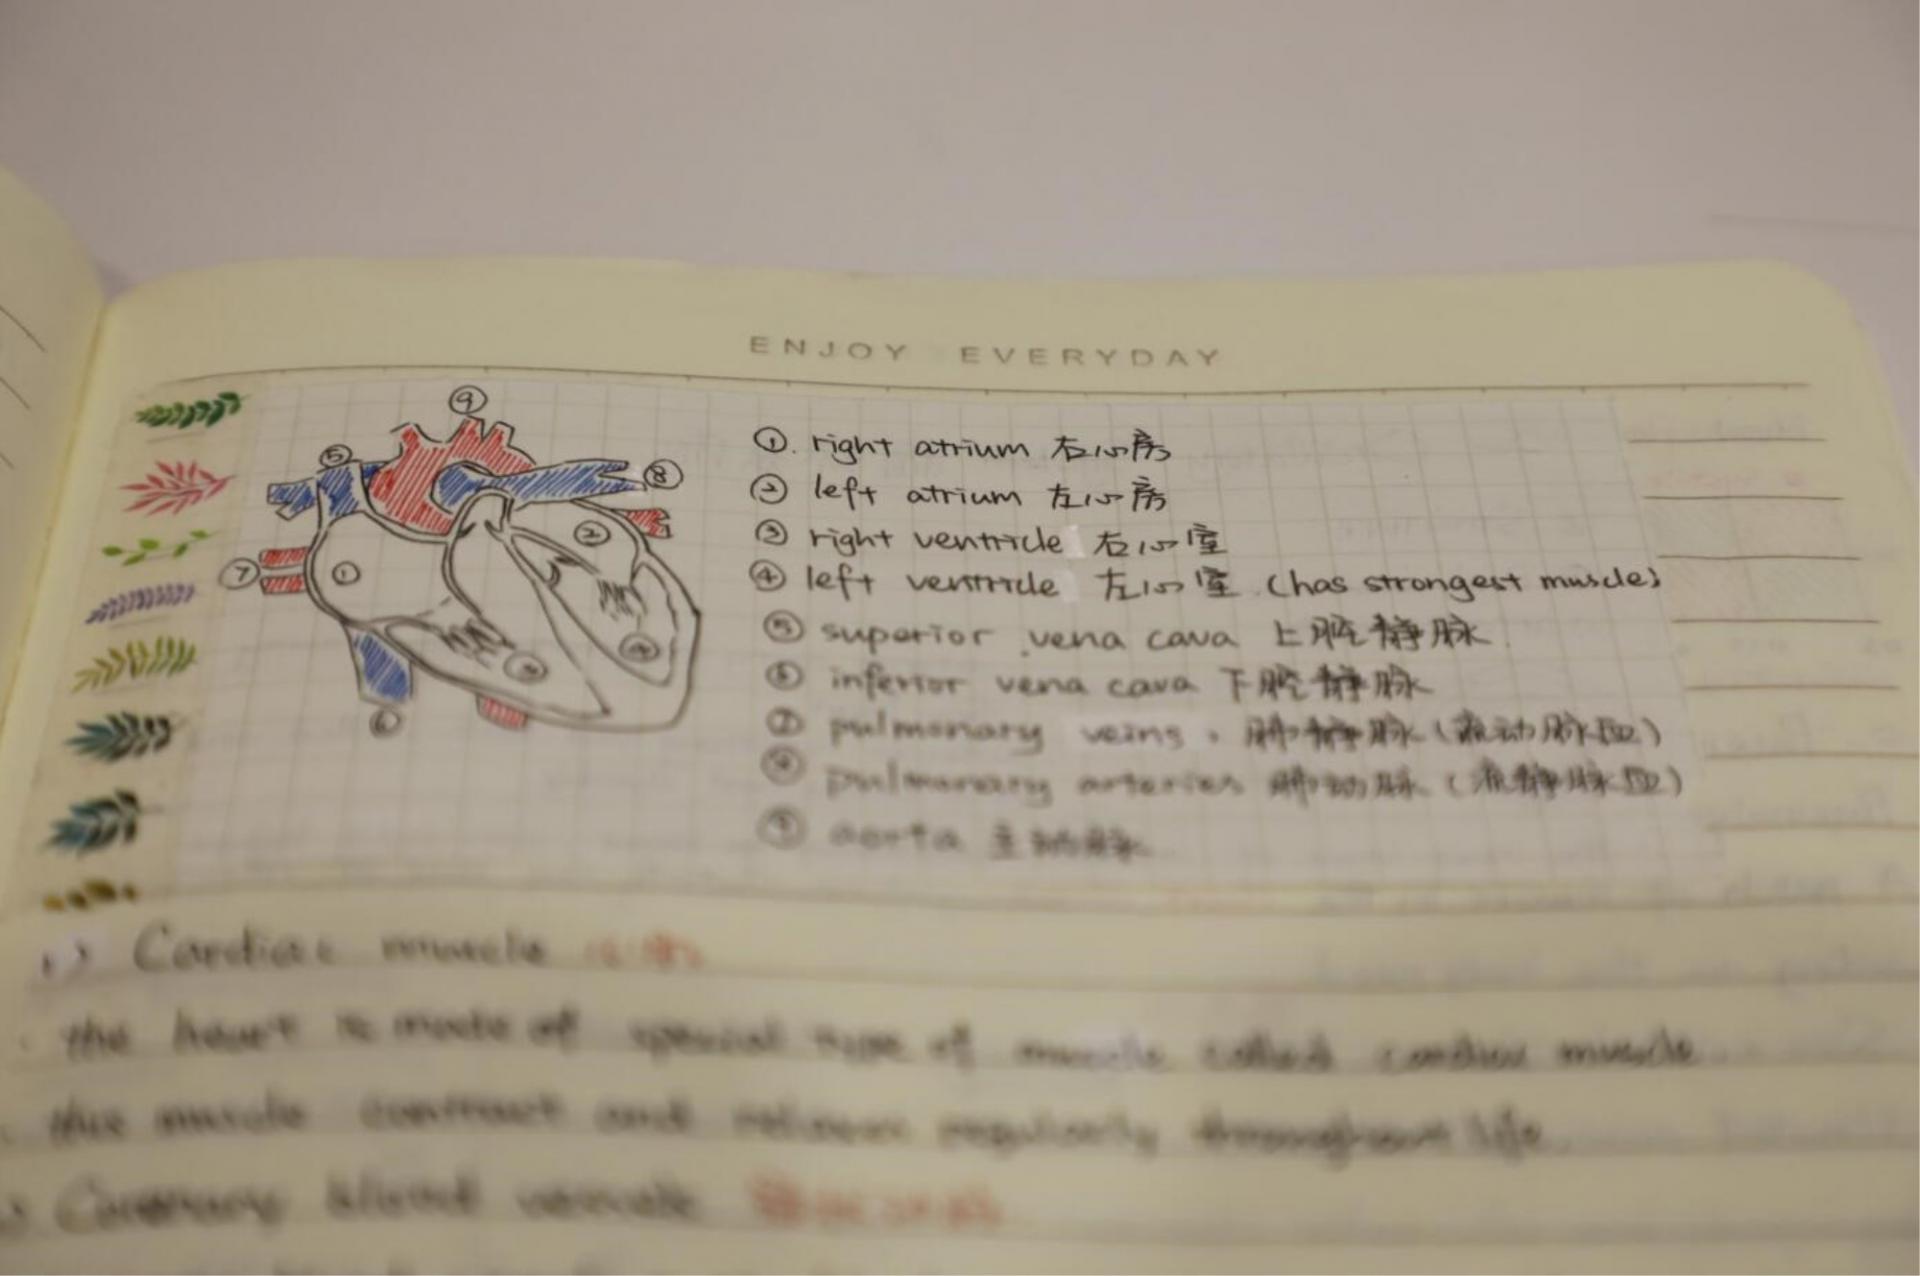 ENJOY EVERYDAY
⑨
⑤
⑧
②
⑦
①
④
③
⑥
①. right atrium 右心房
② left atrium 左心房
③ right ventricle 右心室
④ left ventricle 左心室 (has strongest muscle)
⑤ superior vena cava 上腔静脉
⑥ inferior vena cava 下腔静脉
⑦ pulmonary veins. 肺静脉 (流动脉血)
⑧ pulmonary arteries 肺动脉 (流静脉血)
⑨ aorta 主动脉
1) Cardiac muscle 心肌
the heart is made of special type of muscle called cardiac muscle
this muscle contract and relaxes regularly throughout life.
Coronary blood vessels